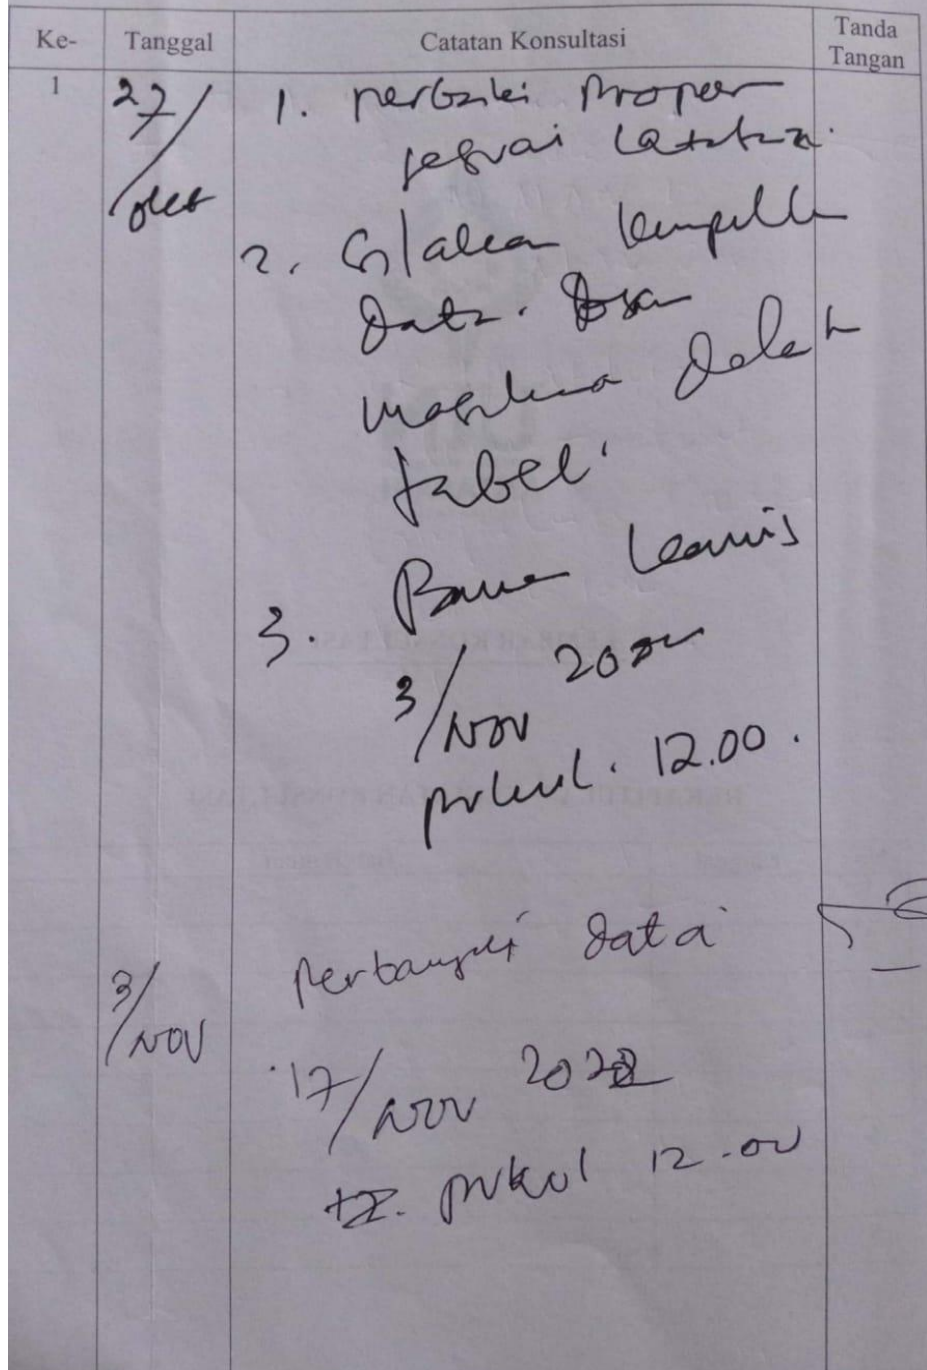 Ke- Tanggal Catatan Konsultasi Tanda Tangan
1 27/okt 1. perbaiki Proper
sesuai catatan.
2. Silakan kumpulkan
data. dan
masukan dalam
tabel.
3. Bawa kamis
3/Nov 20
pukul. 12.00.
3/Nov Perbanyak data
17/Nov 2022
pukul 12.00